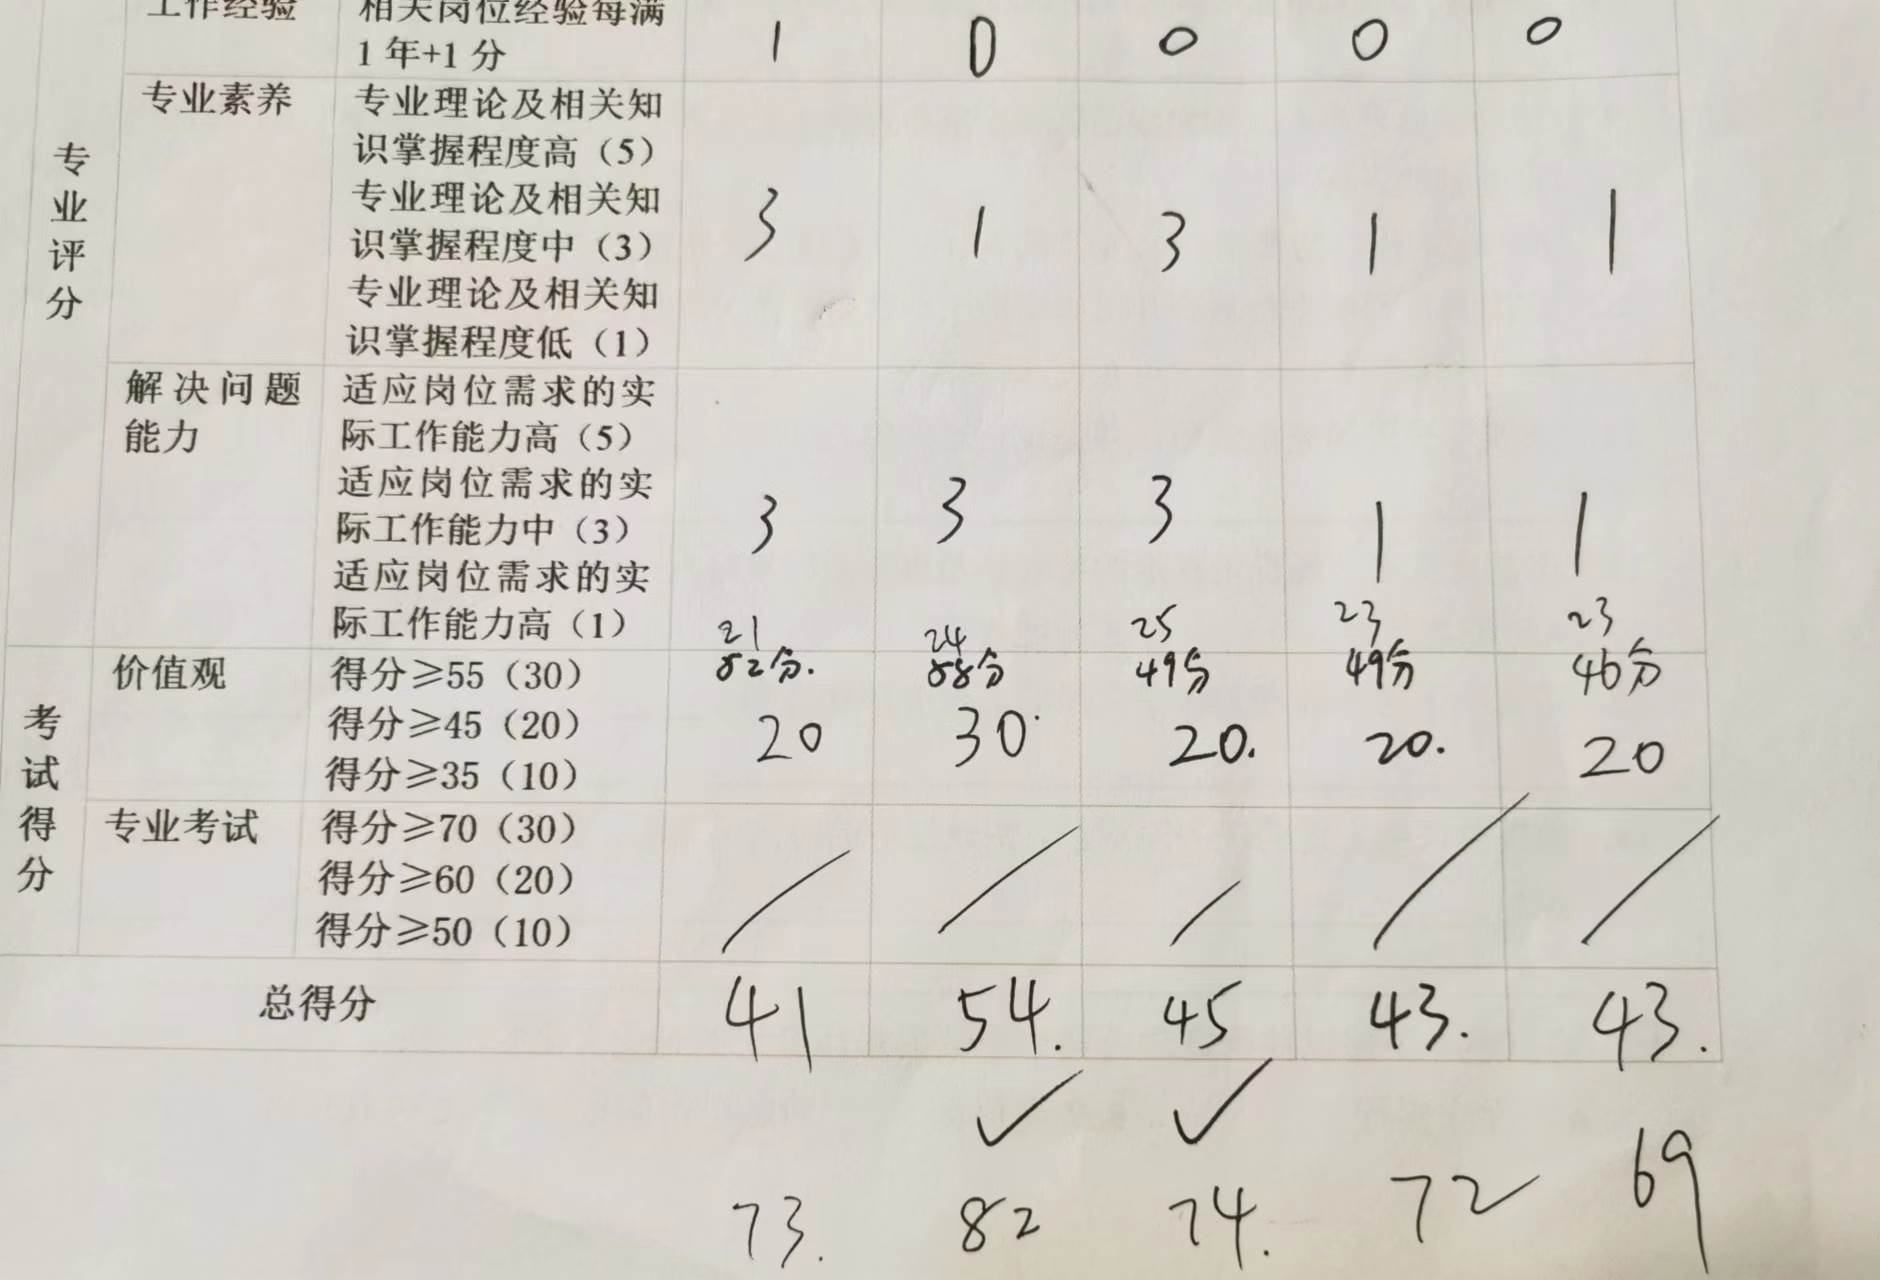 工作经验 相关岗位经验每满
1 年+1 分 1 0 0 0 0
专业评分
专业素养 专业理论及相关知
识掌握程度高（5）
专业理论及相关知
识掌握程度中（3） 3 1 3 1 1
专业理论及相关知
识掌握程度低（1）
解决问题 适应岗位需求的实
能力 际工作能力高（5）
适应岗位需求的实
际工作能力中（3） 3 3 3 1 1
适应岗位需求的实
际工作能力高（1） 21 24 25 23 23
考试得分
价值观 得分≥55（30） 52分. 58分 49分 49分 46分
得分≥45（20） 20 30 20. 20. 20
得分≥35（10）
专业考试 得分≥70（30）
得分≥60（20） / / / / /
得分≥50（10）
总得分 41 54. 45 43. 43.
✓ ✓
73. 82 74. 72 69